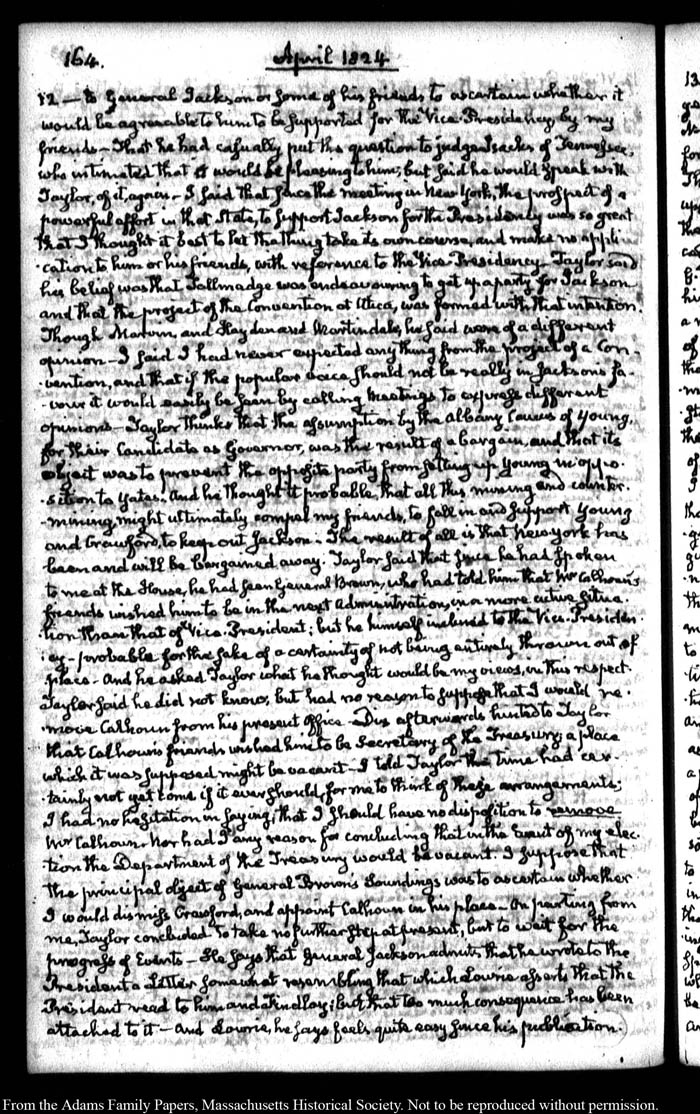 164.
April 1824
12 — to General Jackson or some of his friends to ascertain whether it
would be agreeable to him to be supported for the Vice-Presidency by my
friends — That he had casually put the question to judge Isacks of Tennessee,
who intimated that it would be pleasing to him; but said he would speak with
Taylor, of it, again — I said that since the meeting in New York, the prospect of a
powerful effort in that State, to support Jackson for the Presidency was so great
that I thought it best to let the thing take its own course, and make no appli-
-cation to him or his friends, with reference to the Vice-Presidency. Taylor said
his belief was that Tallmadge was endeavouring to get up a party for Jackson
and that the project of the Convention at Utica, was formed with that intention.
Though Marvin, and Hayden and Martindale, he said were of a different
opinion — I said I had never expected any thing from the project of a Con-
-vention, and that if the popular voice should not be really in Jacksons fa-
-vour it would easily be seen by calling meetings to express different
opinions — Taylor thinks that the assumption by the Albany Caucus of Young,
for their Candidate as Governor, was the result of a bargain, and that its
object was to prevent the opposite party from setting up Young in oppo-
-sition to Yates. And he thought it probable, that all this mining and counter-
-mining, might ultimately compel my friends, to fall in and support Young
and Crawford, to keep out Jackson. The result of all is that New York has
been and will be bargained away. Taylor said that since he had spoken
to me at the House, he had seen General Brown, who had told him that Mr Calhoun's
friends wished him to be in the next Administration, in a more active situa-
-tion than that of Vice-President; but he himself inclined to the Vice-Presiden-
-cy — probable for the sake of a certainty of not being entirely thrown out of
place — And he asked Taylor what he thought would be my views, in this respect.
Taylor said he did not know, but had no reason to suppose that I would re-
-move Calhoun from his present Office. afterwards hinted to Taylor
that Calhoun's friends wished him to be Secretary of the Treasury, a place
which it was supposed might be vacant — I told Taylor the time had cer-
-tainly not yet come if it ever should, for me to think of these arrangements;
I had no hesitation in saying, that I should have no disposition to remove
Mr Calhoun. Nor had I any reason for concluding that in the Event of my elec-
-tion the Department of the Treasury would be vacant. I suppose that
the principal object of General Brown's soundings was to ascertain whether
I would dismiss Crawford, and appoint Calhoun in his place — On parting from
me, Taylor concluded to take no further step at present, but to wait for the
progress of Events — He says that General Jackson admits that he wrote to the
President a Letter somewhat resembling that which Lowrie asserts that the
President read to him and Findlay; but that too much consequence has been
attached to it — And Lowrie, he says feels quite easy since his publication.
From the Adams Family Papers, Massachusetts Historical Society. Not to be reproduced without permission.